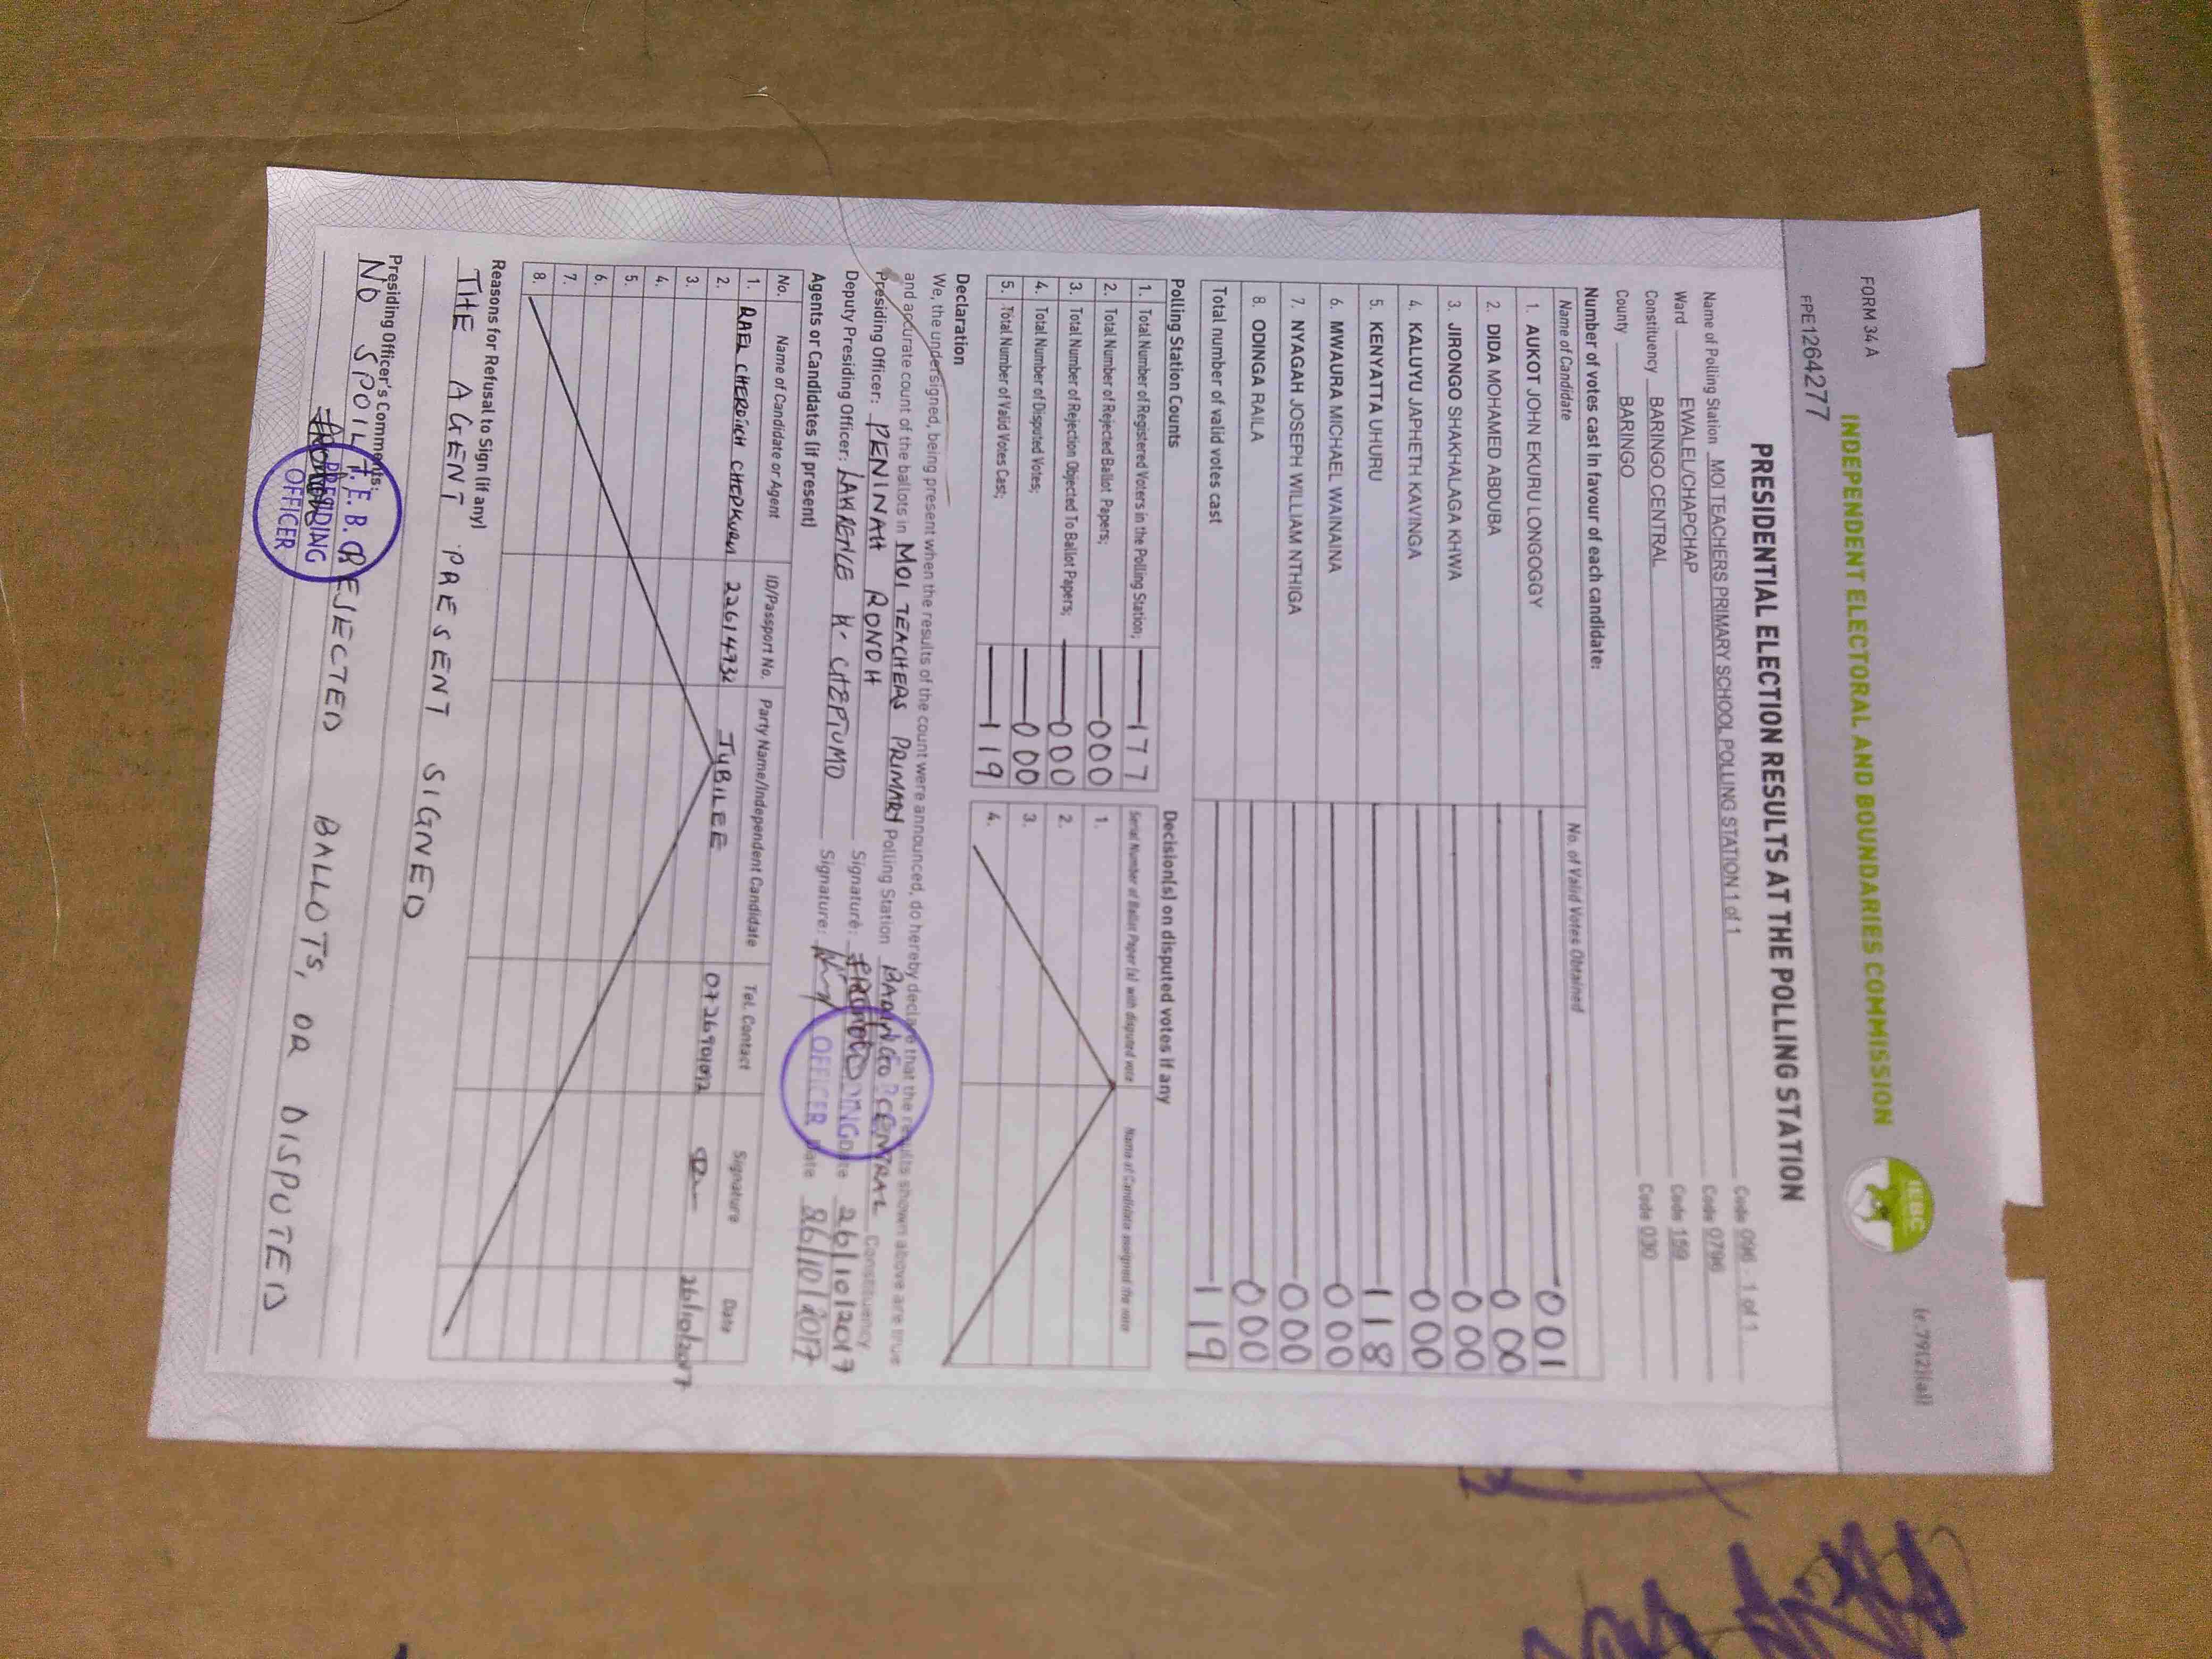 FORM 34 A
(r.79(2)(a))
INDEPENDENT ELECTORAL AND BOUNDARIES COMMISSION
IEBC
FPE1264277
PRESIDENTIAL ELECTION RESULTS AT THE POLLING STATION
Name of Polling Station MOI TEACHERS PRIMARY SCHOOL POLLING STATION 1 of 1 Code 096 1 of 1
Ward EWALEL/CHAPCHAP Code 0796
Constituency BARINGO CENTRAL Code 159
County BARINGO Code 030
Number of votes cast in favour of each candidate:
Name of Candidate No. of Valid Votes Obtained
1. AUKOT JOHN EKURU LONGOGGY 001
2. DIDA MOHAMED ABDUBA 000
3. JIRONGO SHAKHALAGA KHWA 000
4. KALUYU JAPHETH KAVINGA 000
5. KENYATTA UHURU 118
6. MWAURA MICHAEL WAINAINA 000
7. NYAGAH JOSEPH WILLIAM NTHIGA 000
8. ODINGA RAILA 000
Total number of valid votes cast 119
Polling Station Counts
1. Total Number of Registered Voters in the Polling Station; 177
2. Total Number of Rejected Ballot Papers; 000
3. Total Number of Rejection Objected To Ballot Papers; 000
4. Total Number of Disputed Votes; 000
5. Total Number of Valid Votes Cast; 119
Decision(s) on disputed votes if any
Serial Number of Ballot Paper (s) with disputed vote Name of Candidate assigned the vote
1.
2.
3.
4.
Declaration
We, the undersigned, being present when the results of the count were announced, do hereby declare that the results shown above are true
and accurate count of the ballots in MOI TEACHERS PRIMARY Polling Station BARINGO CENTRAL Constituency
Presiding Officer: PENINAH RONOH Signature: Date 26/10/2017
Deputy Presiding Officer: LAWRENCE K. CHEPTUMO Signature: Date 26/10/2017
OFFICER
Agents or Candidates (if present)
No. Name of Candidate or Agent ID/Passport No. Party Name/Independent Candidate Tel. Contact Signature Date
1. RAEL CHEROICH 22614732 JUBILEE 26/10/2017
2.
3.
4.
5.
6.
7.
8.
Reasons for Refusal to Sign (if any)
THE AGENT PRESENT SIGNED
Presiding Officer's Comments:
NO SPOILT, REJECTED BALLOTS, OR DISPUTED
PRESIDING
OFFICER